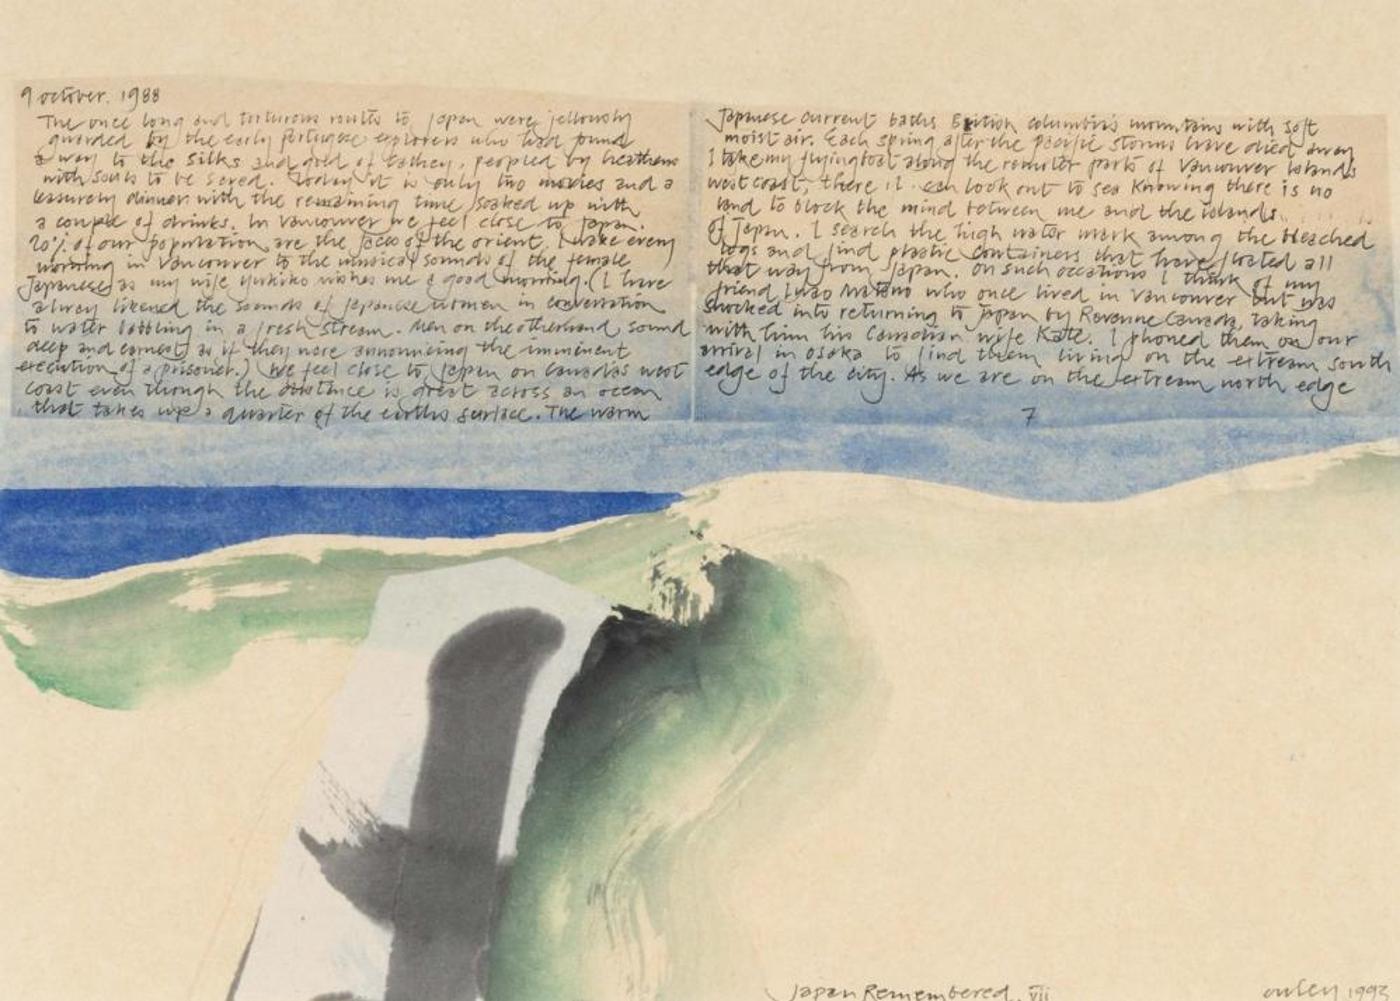 9 october. 1988
The once long and torturous routes to Japan were jellously
guarded by the early Portugese explorers who had found
a way to the silks and gold of Cathey, peopled by heathens
with souls to be saved. Today it is only two movies and a
leasurely dinner with the remaining time soaked up with
a couple of drinks. In Vancouver we feel close to Japan.
20% of our population are the faces of the orient. I wake every
morning in Vancouver to the musical sounds of the female
Japanese as my wife Yukiko wishes me a good morning. (I have
alway likened the sounds of Japanese women in conversation
to water bobbling in a fresh stream. Men on the otherhand, sound
deep and earnest as if they were announcing the imminent
execution of a prisoner.) We feel close to Japan on Canadas west
coast even though the distance is great across an ocean
that takes up a quarter of the earths surface. The warm
Japanese current baths British Columbia's mountains with soft
moist air. Each spring after the pacific storms have died away
I take my flyingboat along the remoter parts of Vancouver Islands
westcoast, there I can look out to sea knowing there is no
land to block the mind between me and the islands
of Japan. I search the high water mark among the bleached
logs and find plastic containers that have floated all
that way from Japan. On such occations I think of my
friend who once lived in Vancouver but was
shocked into returning to Japan by Revenue Canada, taking
with him his Canadian wife Kate. I phoned them on our
arrival in Osaka to find them living on the extream south
edge of the city. As we are on the extream north edge
7
Japan Remembered. VII
1992